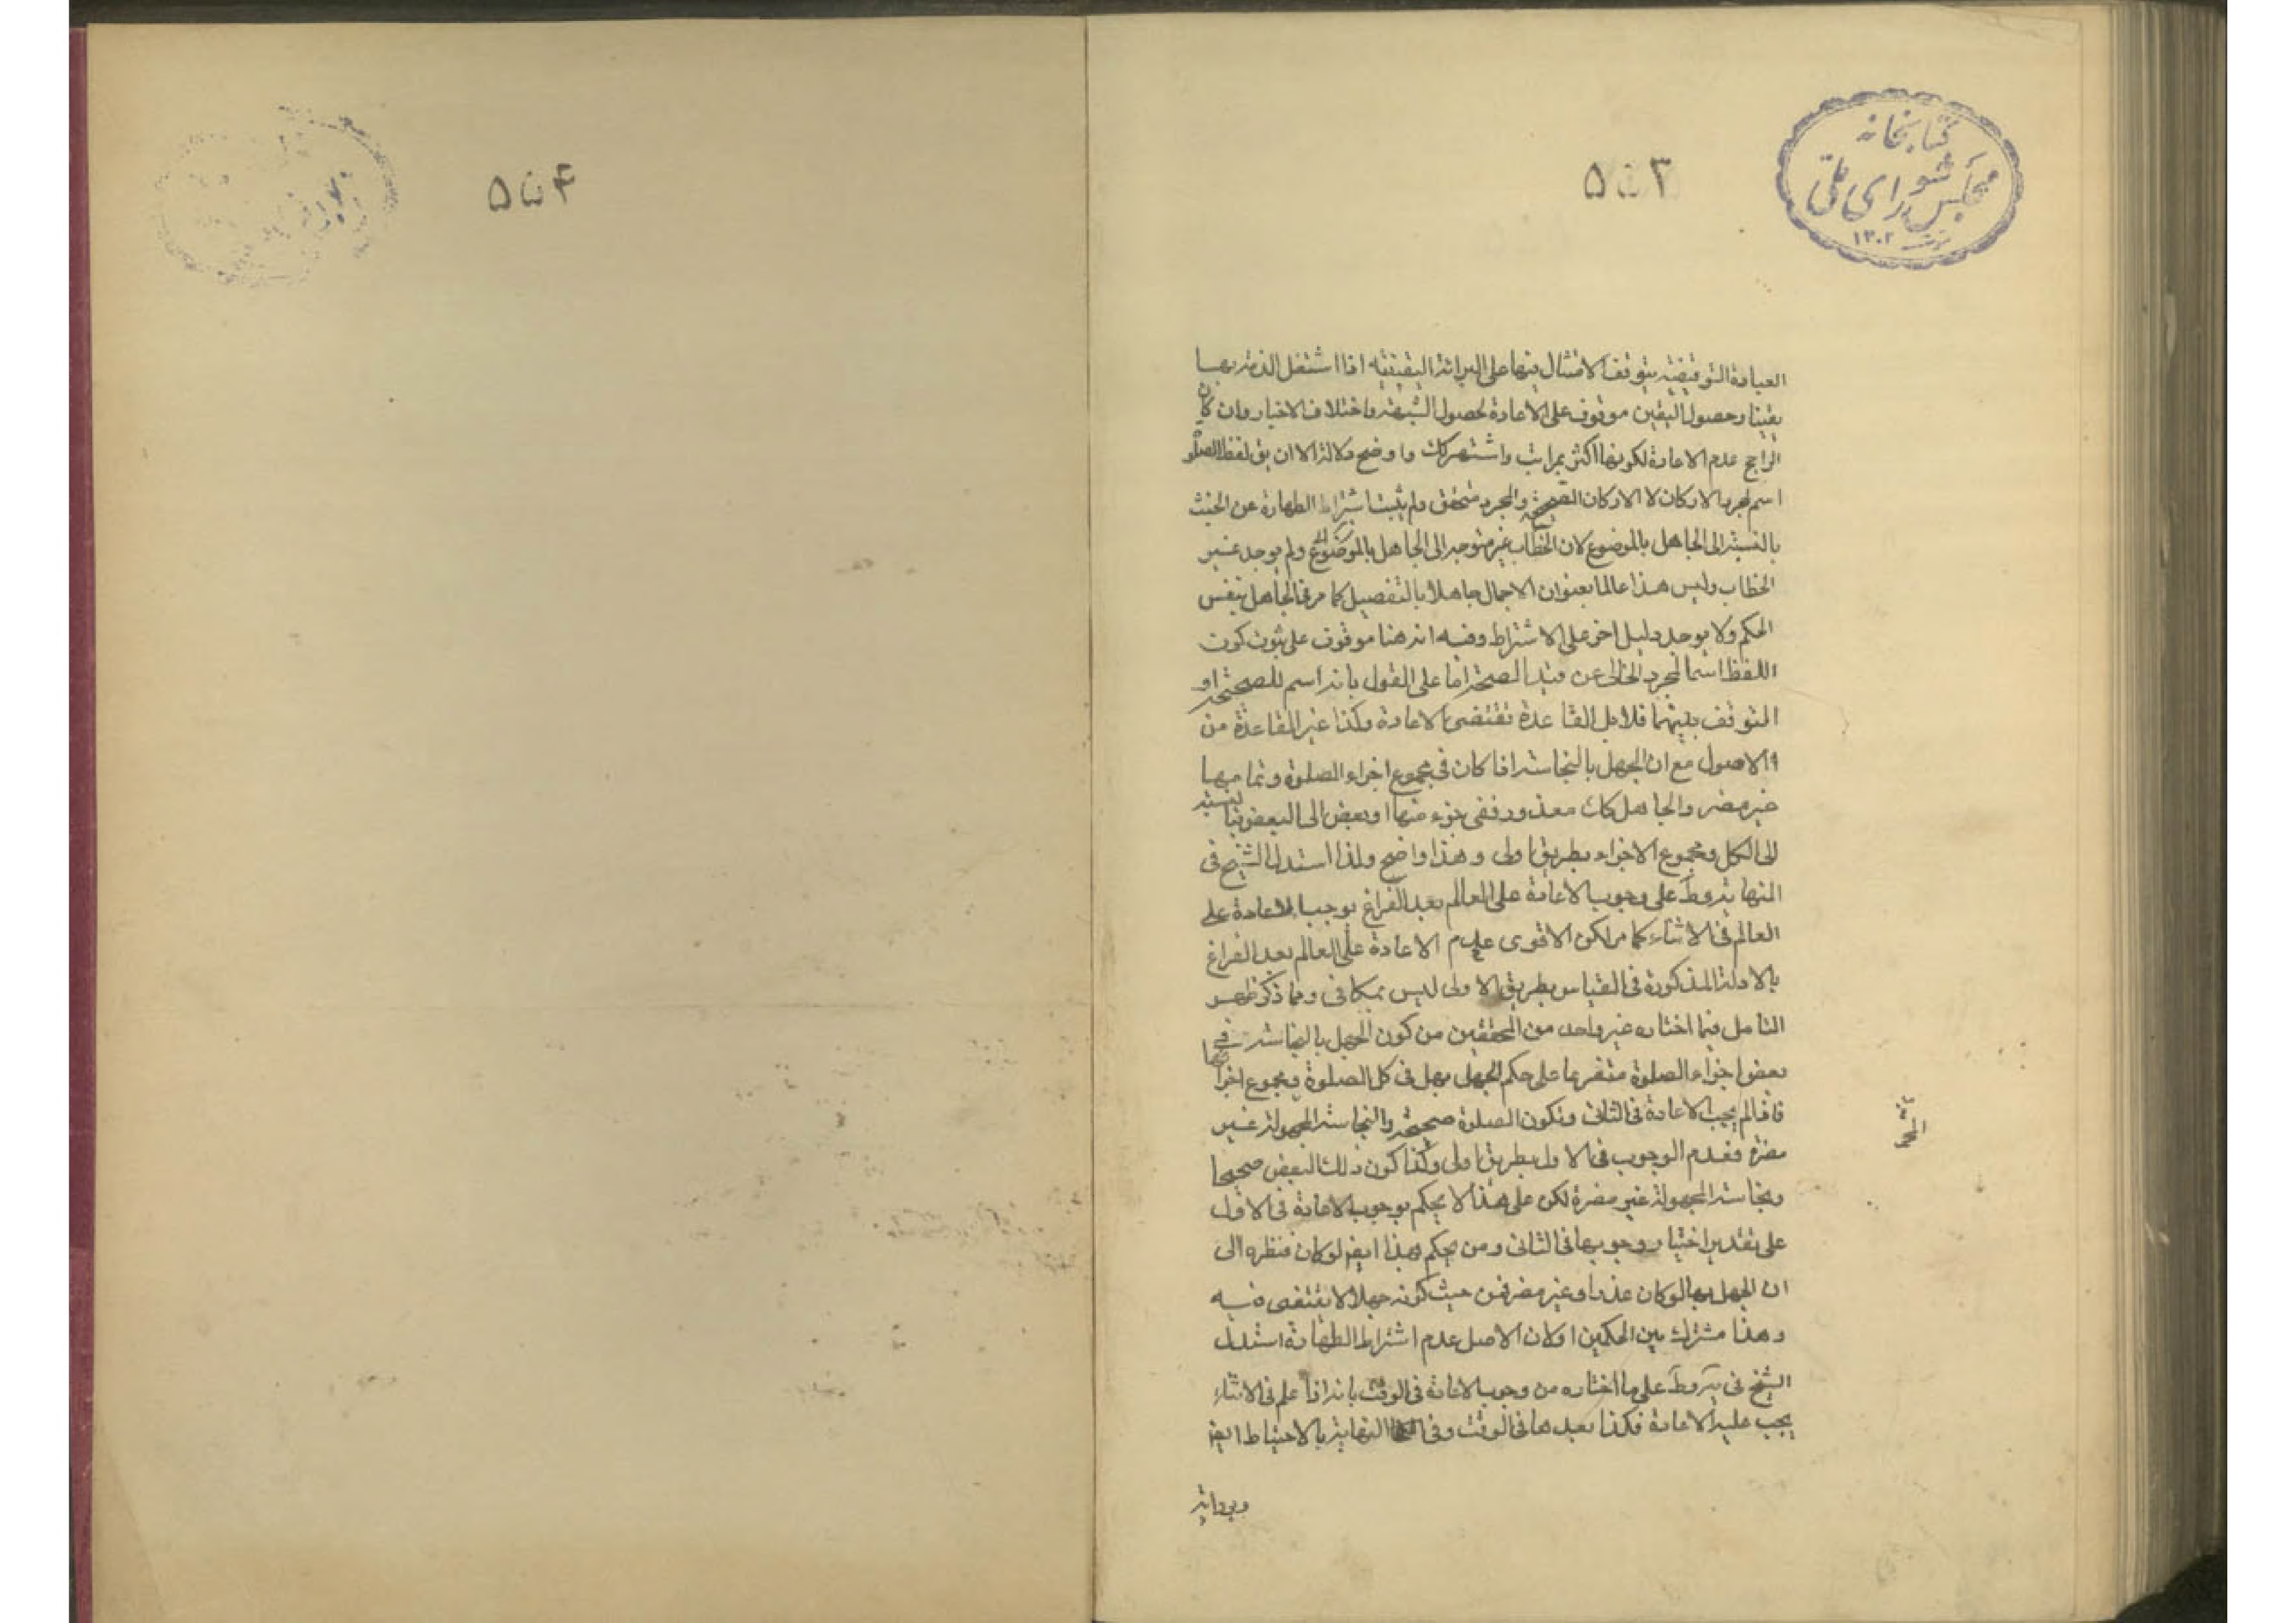 كتابخانه
مجلس شورای ملی
۱۳۰۲
۵۵۳
العبادة التوقيفية يتوقف الامتثال بها على البرائة اليقينية اذا اشتغل الذمة بها
يقينا وحصول اليقين موقوف على الاعادة لحصول الشبهة واختلاف الاخبار وان كان
الراجح عدم الاعادة لكونها اكثر بمراتب واشتهر كك واوضح دلالة الا ان يق لفظ الصلوة
اسم لمجرد الاركان لا الاركان الصحيحة والمجرد متحقق ولم يثبت اشتراط الطهارة عن الخبث
بالنسبة الى الجاهل بالموضوع لان الخطاب غير متوجه الى الجاهل بالموضوع ولم يوجد غير
الخطاب وليس هذا عالما بعنوان الاجمال جاهلا بالتفصيل كما مر فى الجاهل بنفس
الحكم ولا يوجد دليل اخر على الاشتراط وفيه انه هنا موقوف على ثبوت كون
اللفظ اسما لمجرد الخالى عن قيد الصحة اما على القول بانه اسم للصحيحة او
التوقف بينهما فلا بل القاعدة تقتضى الاعادة وكذا غير القاعدة من
الاصول مع ان الجهل بالنجاسة اذا كان فى مجموع اجزاء الصلوة وتمامها
غير مضر والجاهل كان معذورا ففى جزء منها او بعض الى البعض بالنسبة
الى الكل ومجموع الاجزاء بطريق اولى وهذا واضح ولذا استدل الشيخ فى
النهاية وط على وجوب الاعادة على العالم بعد الفراغ بوجوب الاعادة على
العالم فى الاثناء كما مر لكن الاقوى عدم الاعادة على العالم بعد الفراغ
بالادلة المذكورة فى القياس بطريق الاولى ليس بمكافى ومما ذكر ظهر
التامل فيما اختاره غير واحد من المحققين من كون الجهل بالنجاسة فى
بعض اجزاء الصلوة متفرعا على حكم الجهل بها فى كل الصلوة ومجموع اجزائها
فاذا لم يجب الاعادة فى الثانى وتكون الصلوة صحيحة والنجاسة المجهولة غير
مضرة فعدم الوجوب فى الاول بطريق اولى وكذا كون ذلك البعض صحيحا
ونجاسة المجهولة غير مضرة لكن على هذا لا يحكم بوجوب الاعادة فى الاول
على تقدير اختيار وجوبها فى الثانى ومن يحكم بهذا ايض لو كان فنظره الى
ان الجهل بها لو كان عذرا وغير مضر فمن حيث كونه جهلا لا يقتضى فيه
وهذا مشترك بين الحكمين اولان الاصل عدم اشتراط الطهارة استدل
الشيخ فى ط على ما اختاره من وجوب الاعادة فى الوقت بانه اذا علم فى الاثناء
يجب عليه الاعادة فكذا بعدها فى الوقت وفى النهاية بالاحتياط ايض
۵۵۴